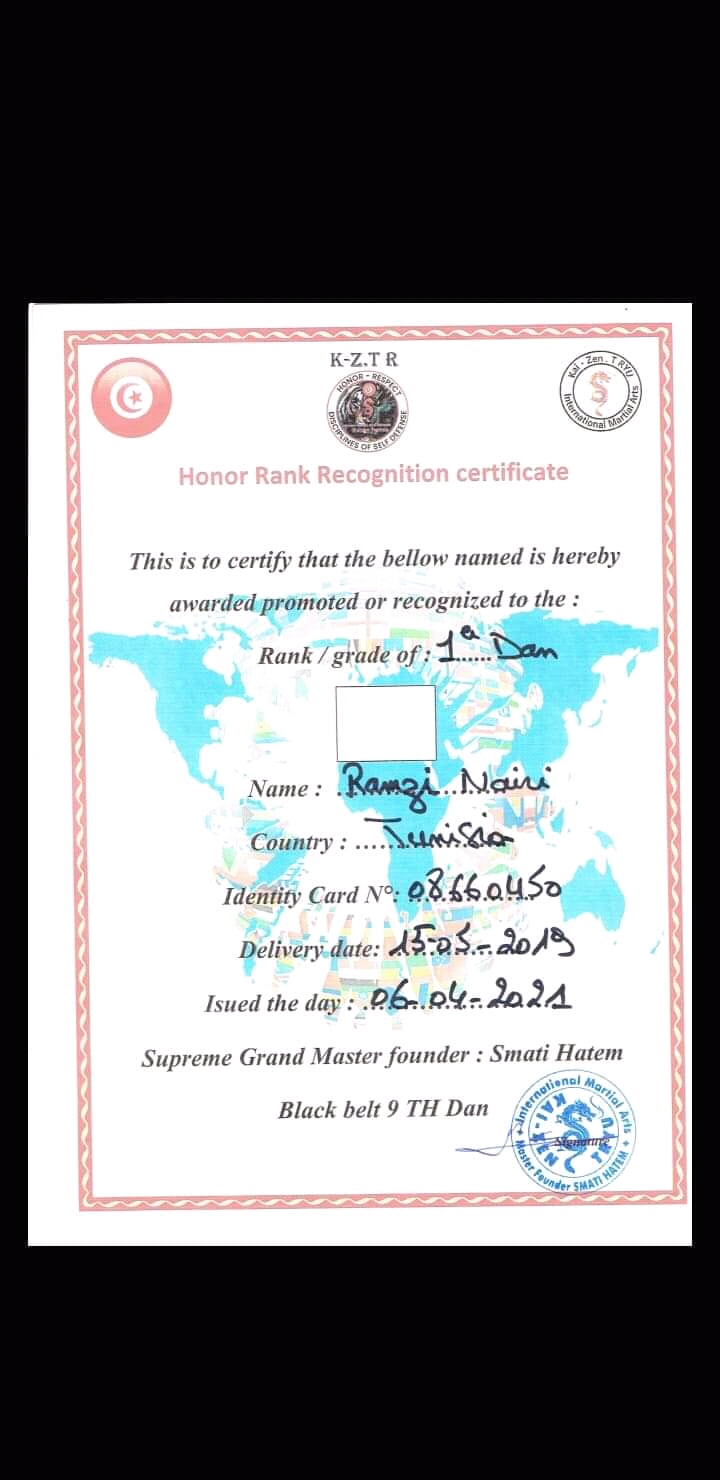 K-Z.T R
HONOR - RESPECT
DISCIPLINES OF SELF DEFENSE
Kai - Zen . T RYU
International Martial Arts
Honor Rank Recognition certificate
This is to certify that the bellow named is hereby
awarded promoted or recognized to the :
Rank / grade of : 1er Dan
Name : Ramzi Nairi
Country : Tunisia
Identity Card N°: 08660450
Delivery date: 15-05-2019
Isued the day : 06-04-2021
Supreme Grand Master founder : Smati Hatem
Black belt 9 TH Dan
International Martial Arts
KAI-ZEN T RYU
Signature
Master Founder SMATI HATEM